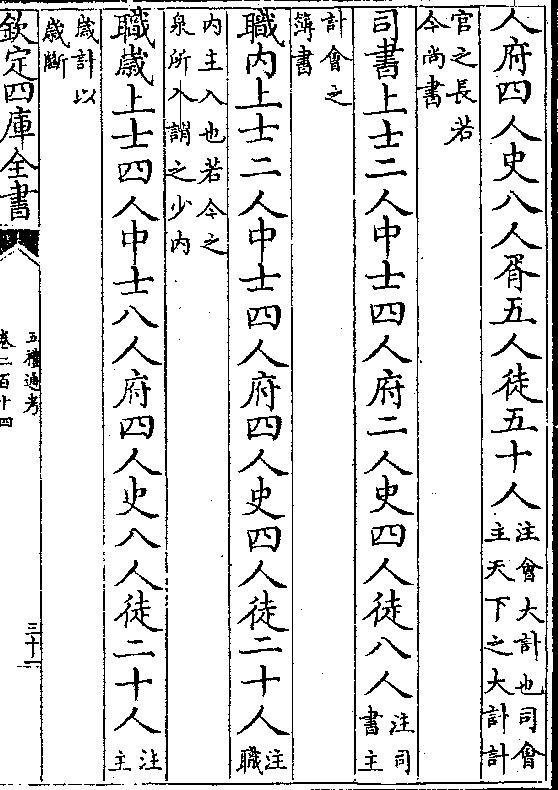 人府四人史八人胥五人徒五十人注會大計也司會
主天下之大計計
官之長若
今尚書
司書上士二人中士四人府二人史四人徒八人注司
書主
計會之
簿書
職内上士二人中士四人府四人史四人徒二十人注
職
内主入也若今之
泉所入謂之少内
職歲上士四人中士八人府四人史八人徒二十人注
主
歲計以
歲斷
欽定四庫全書
五禮通考
卷二百十四